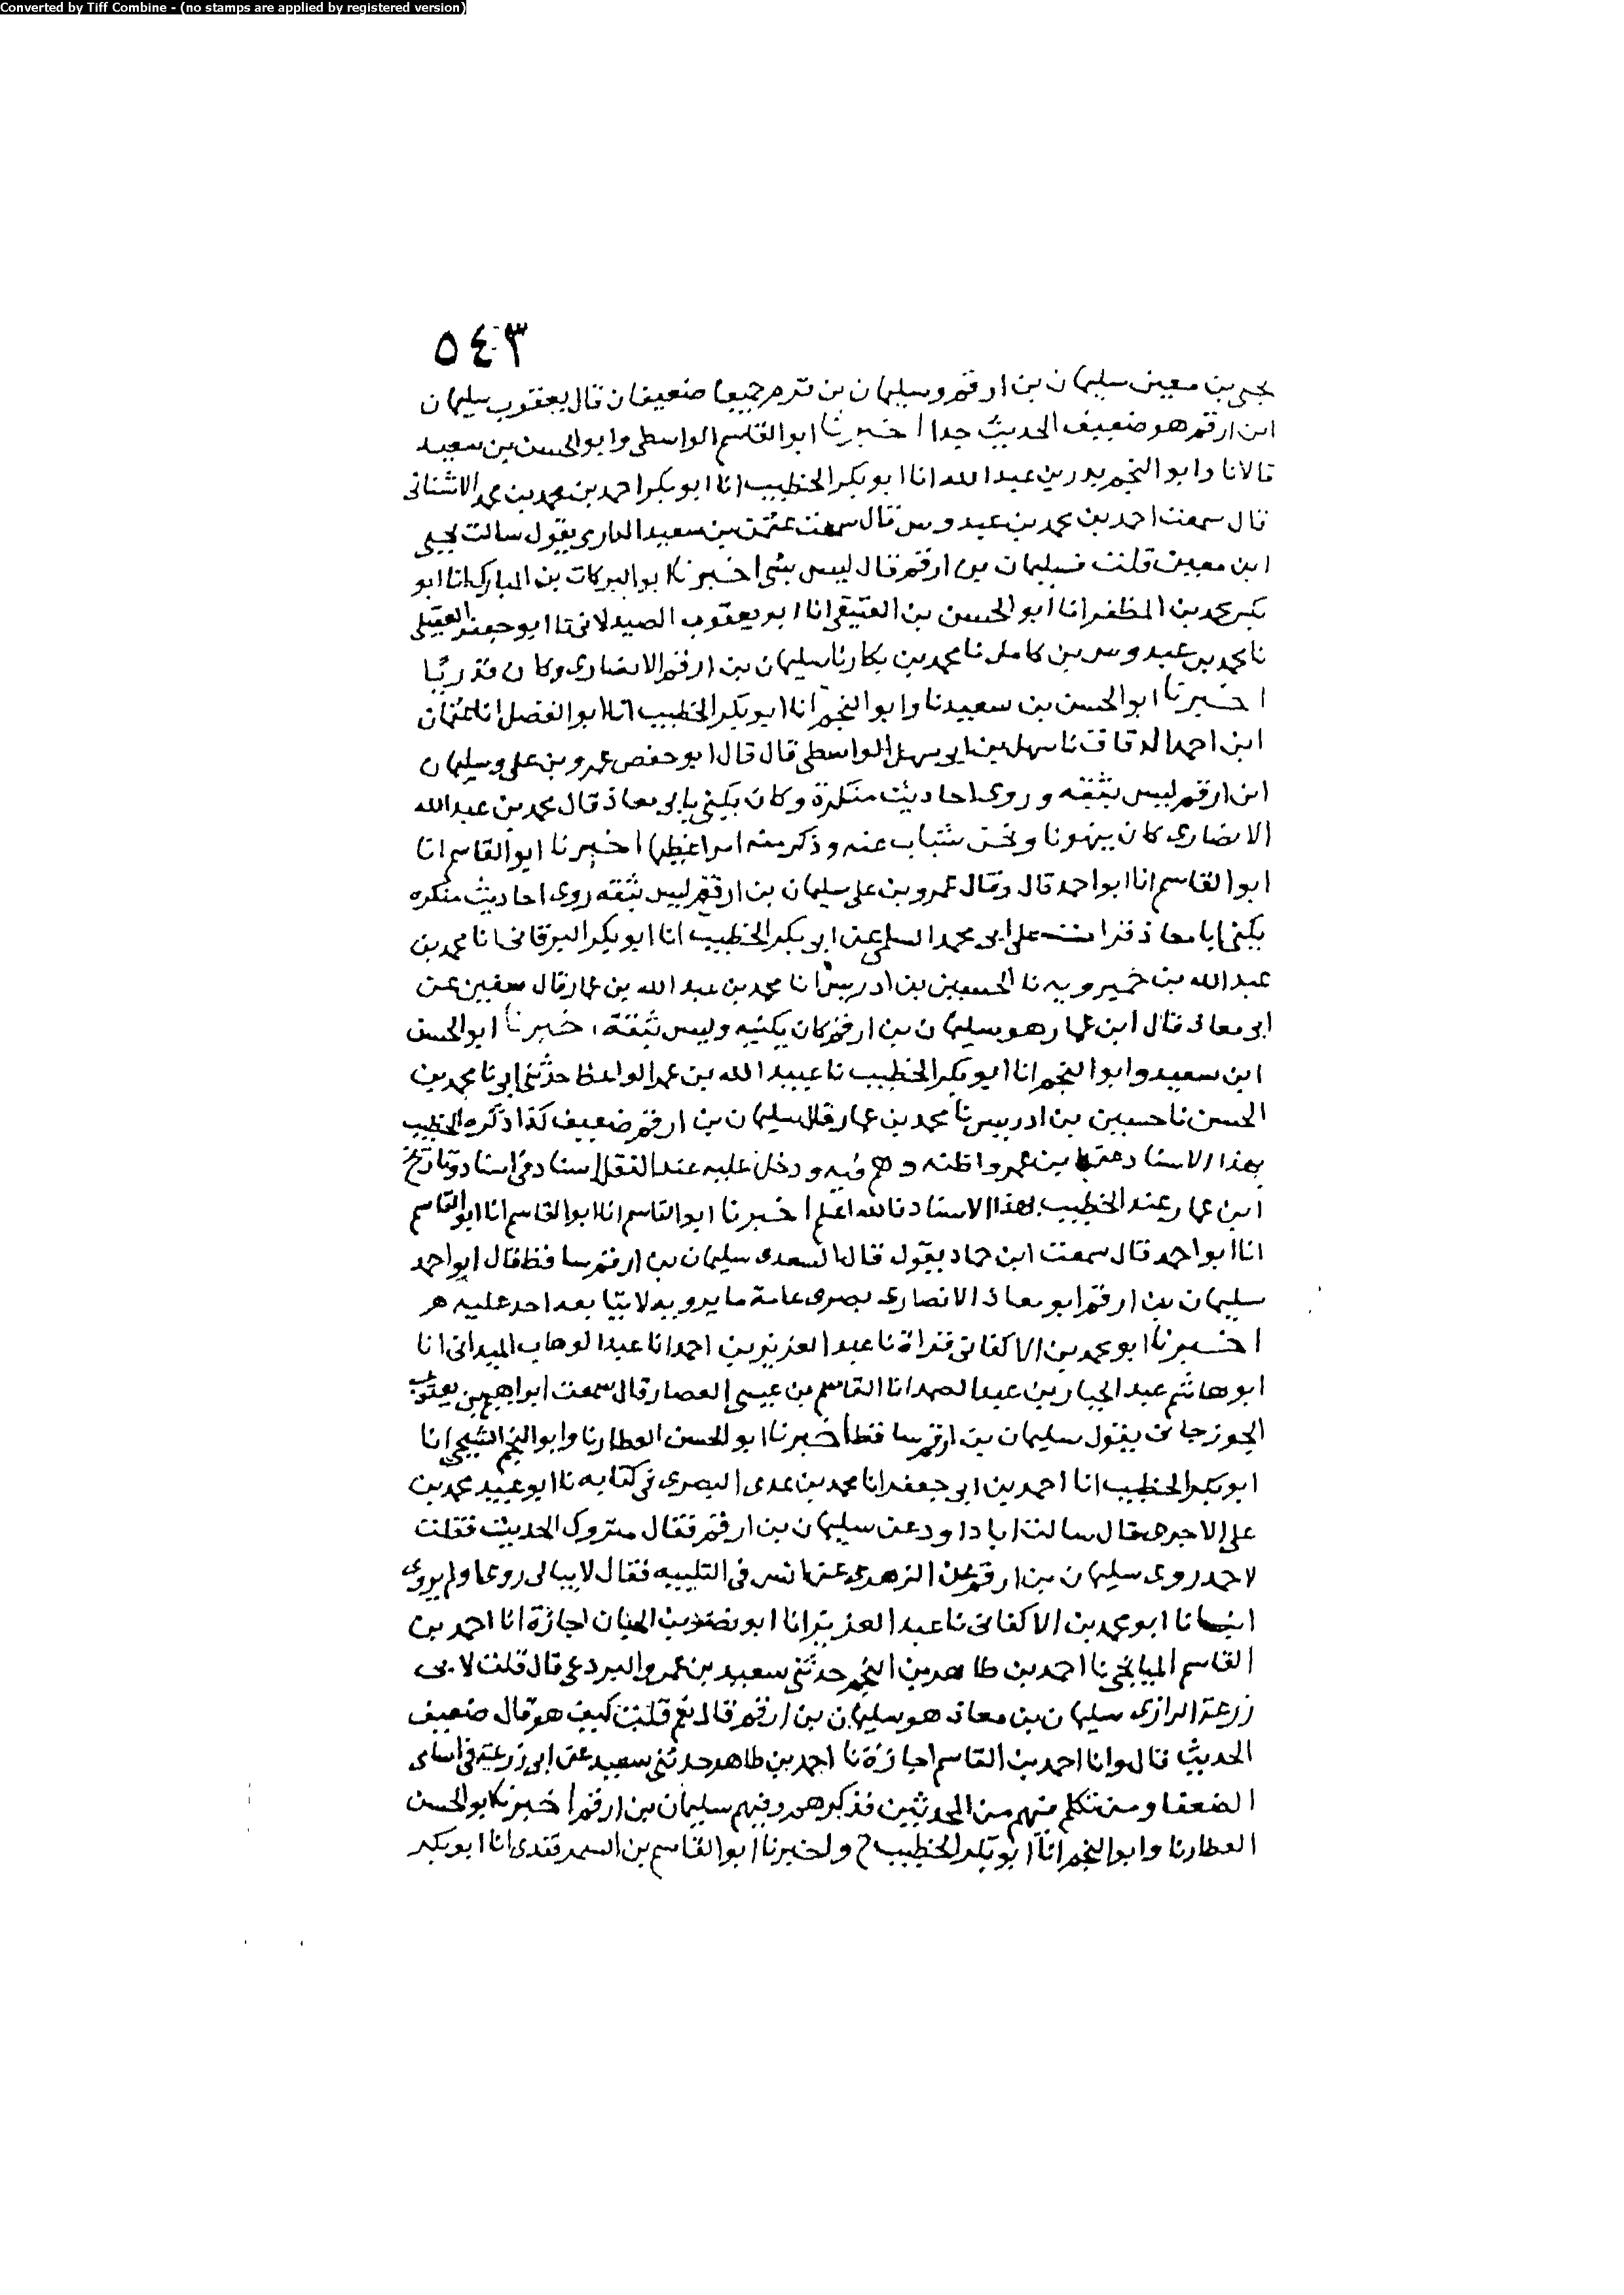 Converted by Tiff Combine - (no stamps are applied by registered version)
٥٤٣
يحيى بن معين سليمان بن ارقم وسليمان بن قرم جميعا ضعيفان قال يعقوب سليمان
ابن ارقم هو ضعيف الحديث جدا اخبرنا ابو القاسم الواسطى وابو الحسن بن سعيد
قالا نا وابو النجم بدر بن عبد الله انا ابو بكر الخطيب انا ابو بكر احمد بن محمد بن محمد الاشنانى
قال سمعت احمد بن محمد بن عبدوس قال سمعت عثمن بن سعيد الدارى يقول سالت يحيى
ابن معين قلت فسليمان بن ارقم قال ليس بشى اخبرنا ابو البركات بن المبارك انا ابو
بكر محمد بن المظفر انا ابو الحسن بن العتيقى انا ابو يعقوب الصيدلانى نا ابو جعفر العقيلى
نا محمد بن عبدوس بن كامل نا محمد بن بكار نا سليمان بن ارقم الانصارى وكان قدريا
اخبرنا ابو الحسن بن سعيد نا وابو النجم انا ابو بكر الخطيب انا ابو الفضل انا عثمان
ابن احمد الدقاق نا سهل بن ابى سهل الواسطى قال قال ابو حفص عمرو بن على وسليمان
ابن ارقم ليس بثقه وروى احاديث منكرة وكان يكنى بابى معاذ قال محمد بن عبد الله
الانصارى كان ينهونا ونحن شباب عنه وذكر منه امرا عظيما اخبرنا ابو القاسم انا
ابو القاسم انا ابو احمد قال وقال عمرو بن على سليمان بن ارقم ليس بثقه روى احاديث منكره
يكنى ابا معاذ قرات على ابى محمد السلمى عن ابى بكر الخطيب انا ابو بكر البرقانى انا محمد بن
عبد الله بن خميرويه نا الحسين بن ادريس انا محمد بن عبد الله بن عمار قال سفين عن
ابى معاذ قال ابن عمار هو سليمان بن ارقم كان يكنيه وليس بثقة اخبرنا ابو الحسن
ابن سعيد وابو النجم انا ابو بكر الخطيب نا عبيد الله بن عمر الواعظ حدثنى ابى نا محمد بن
الحسن نا حسين بن ادريس نا محمد بن عمار قال سليمان بن ارقم ضعيف كذا ذكره الخطيب
بهذا الاسناد بن عمرو اظنه وهم فيه ودخل عليه عند النقل اسناد فى اسناد وتاريخ
ابن عمار عند الخطيب بهذا الاسناد فالله اعلم اخبرنا ابو القاسم انا ابو القاسم انا ابو القاسم
انا ابو احمد قال سمعت ابن حماد يقول قال السعدى سليمان بن ارقم ساقط قال ابو احمد
سليمان بن ارقم ابو معاذ الانصارى بصرى عامة ما يرويه لا يتابعه احد عليه هر
اخبرنا ابو محمد بن الاكفانى قراة نا عبد العزيز بن احمد انا عبد الوهاب الميدانى انا
ابو هاشم عبد الجبار بن عبد الصمد انا القاسم بن عيسى العصار قال سمعت ابراهيم بن يعقوب
الجوزجانى يقول سليمان بن ارقم ساقط اخبرنا ابو الحسن العطار نا وابو النجم الشيحى انا
ابو بكر الخطيب انا احمد بن ابى جعفر انا محمد بن عدى البصرى فى كتابه نا ابو عبيد محمد بن
على الاجرى قال سالت ابا داود عن سليمان بن ارقم فقال متروك الحديث فقلت
لاحمد روى سليمان بن ارقم عن الزهرى عن انس فى التلبيه فقال لا يبالى روى او لم يروى
انبانا ابو محمد بن الاكفانى نا عبد العزيز انا ابو نصر بن الجبان اجازة انا احمد بن
القاسم الميانجى نا احمد بن طاهر بن النجم حدثنى سعيد بن عمرو البردعى قال قلت لابى
زرعة الرازى سليمان بن معاذ هو سليمان بن ارقم قال نعم قلت كيف هو قال ضعيف
الحديث قال وانا احمد بن القاسم اجازة نا احمد بن طاهر حدثنى سعيد عن ابى زرعة فى اسامى
الضعفا ومن تكلم فيهم من المحدثين فذكرهم وفيهم سليمان بن ارقم اخبرنا ابو الحسن
العطار نا وابو النجم انا ابو بكر الخطيب ح واخبرنا ابو القاسم بن السمرقندى انا ابو بكر